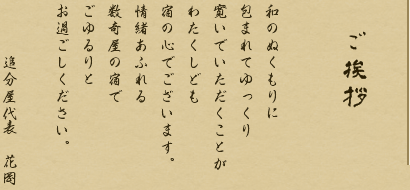 ご挨拶
和のぬくもりに
包まれてゆっくり
寛いでいただくことが
わたくしども
宿の心でございます。
情緒あふれる
数奇屋の宿で
ごゆるりと
お過ごしください。
追分屋代表 花岡